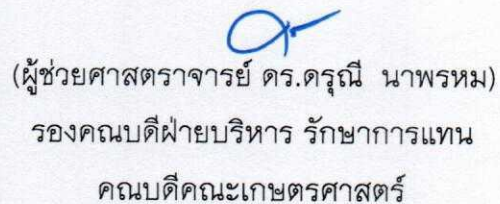 (ผู้ช่วยศาสตราจารย์ ดร.ดรุณี นาพรหม)
รองคณบดีฝ่ายบริหาร รักษาการแทน
คณบดีคณะเกษตรศาสตร์